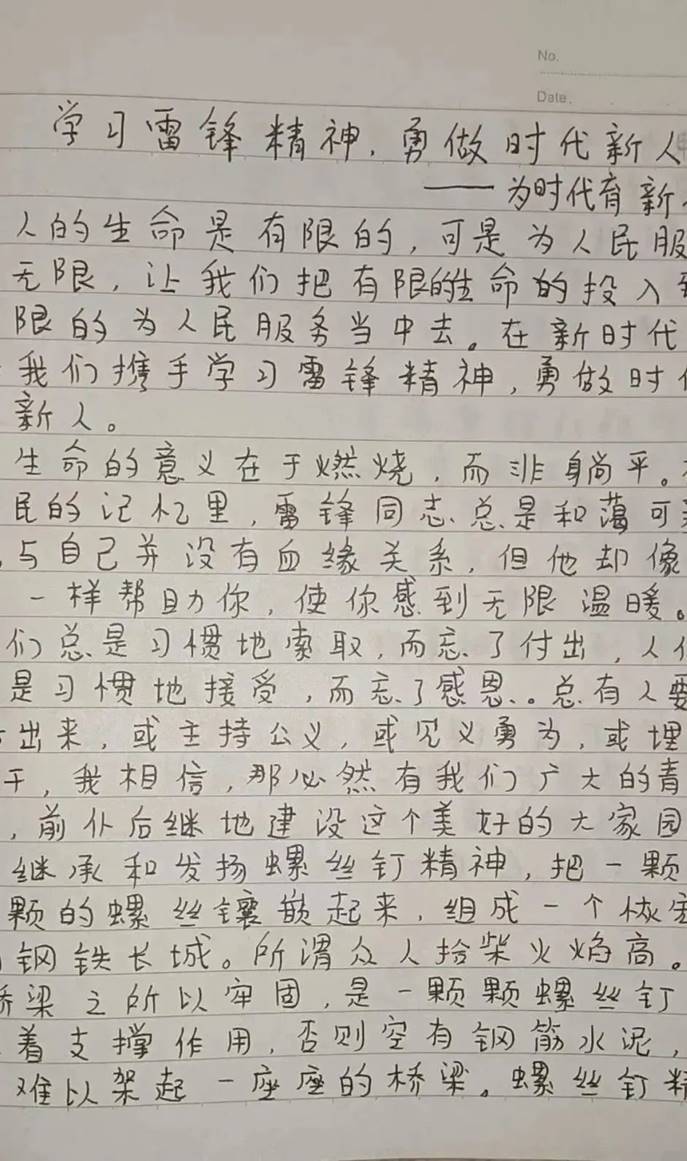 No.
Date.
学习雷锋精神,勇做时代新人
——为时代育新
人的生命是有限的,可是为人民服
无限,让我们把有限的生命的投入
限的为人民服务当中去。在新时代
我们携手学习雷锋精神,勇做时
新人。
生命的意义在于燃烧,而非躺平。
民的记忆里,雷锋同志总是和蔼可
与自己并没有血缘关系,但他却像
一样帮助你,使你感到无限温暖。
们总是习惯地索取,而忘了付出,人
是习惯地接受,而忘了感恩。总有人要
出来,或主持公义,或见义勇为,或埋
干,我相信,那必然有我们广大的青
,前仆后继地建设这个美好的大家园
继承和发扬螺丝钉精神,把一颗
颗的螺丝镶嵌起来,组成一个恢宏
钢铁长城。所谓众人拾柴火焰高。
桥梁之所以牢固,是一颗颗螺丝钉
着支撑作用,否则空有钢筋水泥,
难以架起一座座的桥梁。螺丝钉精